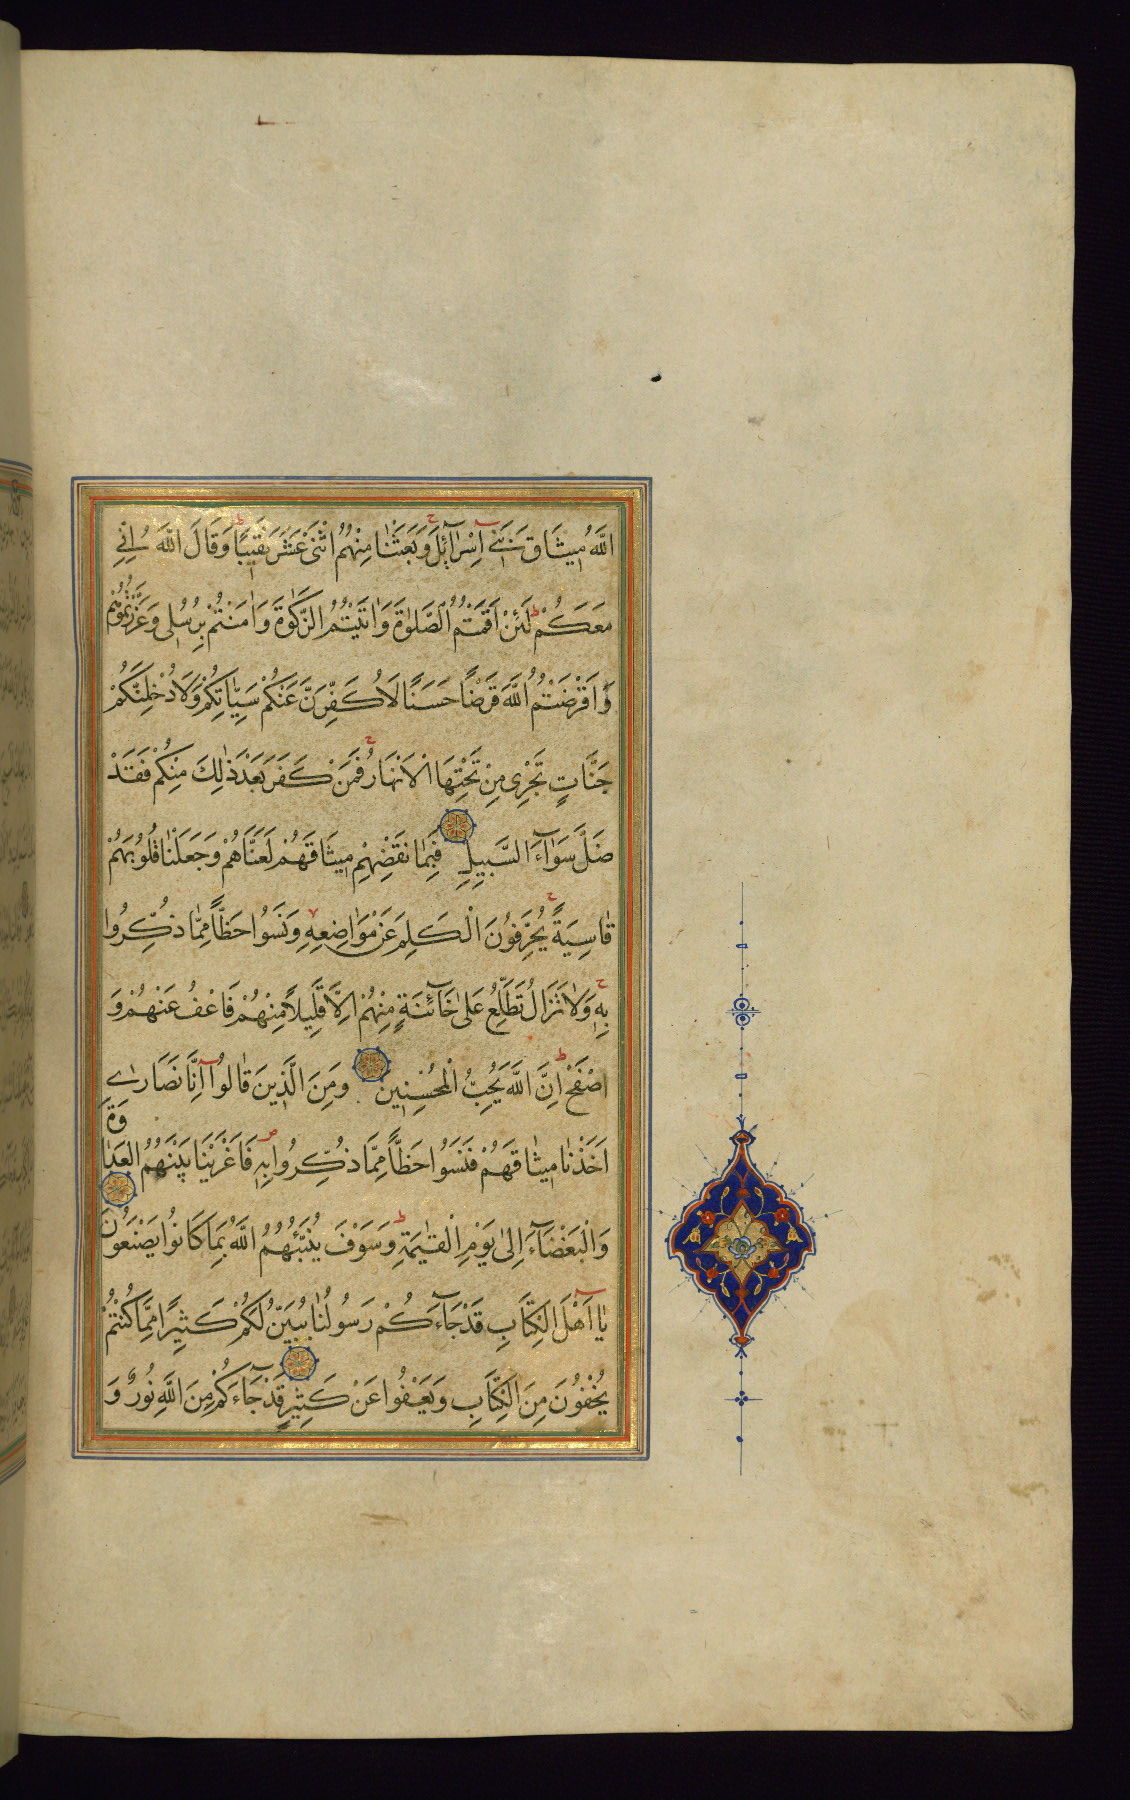 اللَّهُ مِيثَاقَ بَنِي إِسْرَائِلَ وَبَعَثْنَا مِنْهُمُ اثْنَيْ عَشَرَ نَقِيبًا وَقَالَ اللَّهُ إِنِّي
مَعَكُمْ لَئِنْ أَقَمْتُمُ الصَّلٰوةَ وَاٰتَيْتُمُ الزَّكٰوةَ وَاٰمَنْتُمْ بِرُسُلِي وَعَزَّرْتُمُوهُمْ
وَاَقْرَضْتُمُ اللَّهَ قَرْضًا حَسَنًا لَاُكَفِّرَنَّ عَنْكُمْ سَيِّاٰتِكُمْ وَلَاُدْخِلَنَّكُمْ
جَنَّاتٍ تَجْرِي مِنْ تَحْتِهَا الْاَنْهَارُ فَمَنْ كَفَرَ بَعْدَ ذٰلِكَ مِنْكُمْ فَقَدْ
ضَلَّ سَوَآءَ السَّبِيلِ فَبِمَا نَقْضِهِمْ مِيثَاقَهُمْ لَعَنَّاهُمْ وَجَعَلْنَا قُلُوبَهُمْ
قَاسِيَةً يُحَرِّفُونَ الْكَلِمَ عَنْ مَوَاضِعِهِ وَنَسُوا حَظًّا مِمَّا ذُكِّرُوا
بِهِ وَلَا تَزَالُ تَطَّلِعُ عَلٰى خَآئِنَةٍ مِنْهُمْ اِلَّا قَلِيلًا مِنْهُمْ فَاعْفُ عَنْهُمْ وَ
اصْفَحْ اِنَّ اللَّهَ يُحِبُّ الْمُحْسِنِينَ وَمِنَ الَّذِينَ قَالُوا اِنَّا نَصَارٰى
اَخَذْنَا مِيثَاقَهُمْ فَنَسُوا حَظًّا مِمَّا ذُكِّرُوا بِهِ فَاَغْرَيْنَا بَيْنَهُمُ الْعَدَاوَةَ
وَالْبَغْضَآءَ اِلٰى يَوْمِ الْقِيٰمَةِ وَسَوْفَ يُنَبِّئُهُمُ اللَّهُ بِمَا كَانُوا يَصْنَعُونَ
يَا اَهْلَ الْكِتَابِ قَدْ جَآءَكُمْ رَسُولُنَا يُبَيِّنُ لَكُمْ كَثِيرًا مِمَّا كُنْتُمْ
تُخْفُونَ مِنَ الْكِتَابِ وَيَعْفُوا عَنْ كَثِيرٍ قَدْ جَآءَكُمْ مِنَ اللَّهِ نُورٌ وَ